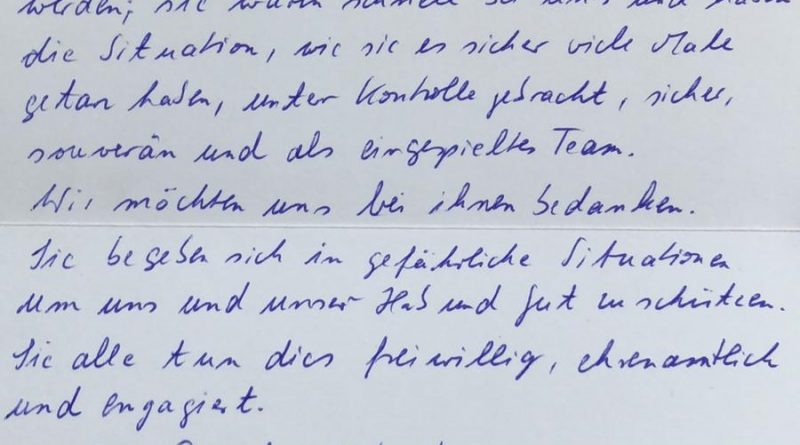 werden, sie waren schnell bei uns und haben
die Situation, wie sie es sicher viele Male
getan haben, unter Kontrolle gebracht, sicher,
souverän und als eingespieltes Team.
Wir möchten uns bei ihnen bedanken.
Sie begeben sich in gefährliche Situationen
um uns und unser Hab und Gut zu schützen.
Sie alle tun dies freiwillig, ehrenamtlich
und engagiert.